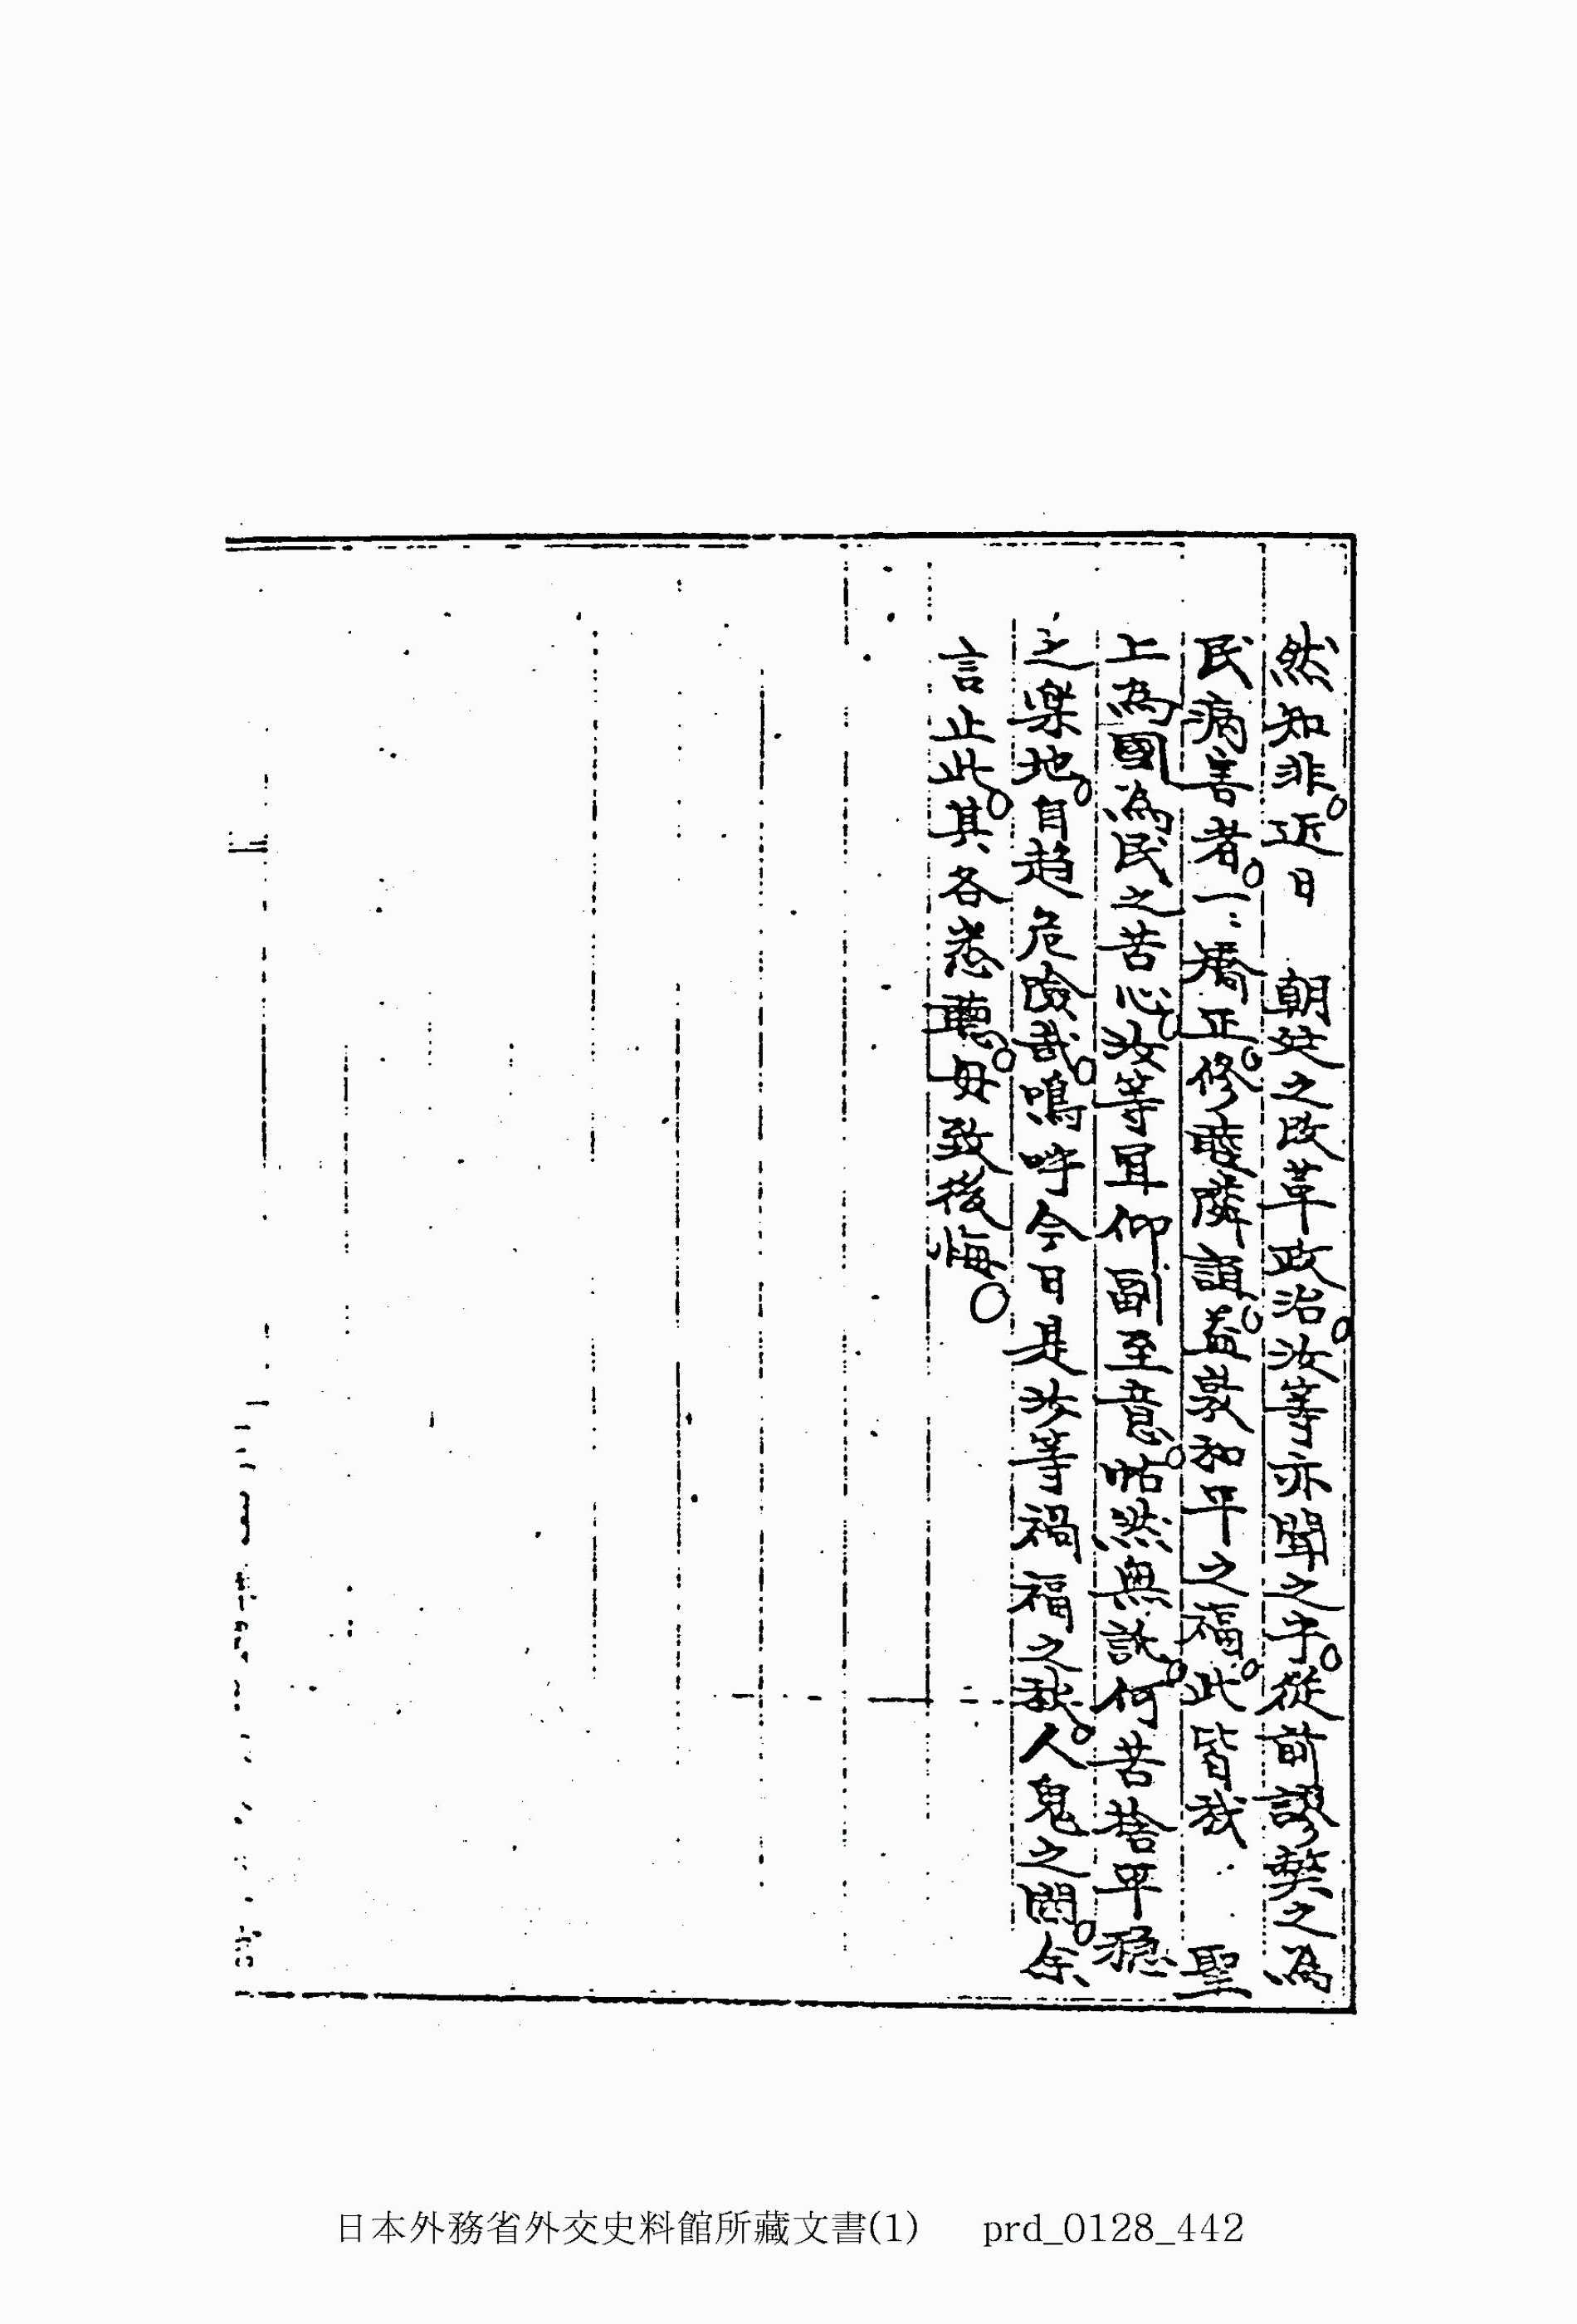 然知非。近日　朝廷之改革政治。汝等亦聞之乎。從前謬弊之為
民病害者。一〻矯正。修睦隣誼。益敦和平之福。此皆我　聖
上為國為民之苦心。汝等耳仰副至意。帖然無訛。何苦捨平穏
之楽地。自趨危險哉。嗚呼今日是汝等禍福之秋。人鬼之関。余
言止此。其各悉聽。毋致後悔。
日本外務省外交史料館所藏文書(1)　prd_0128_442